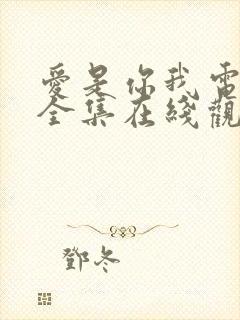 愛是你我電
全集在綫觀
鄧冬